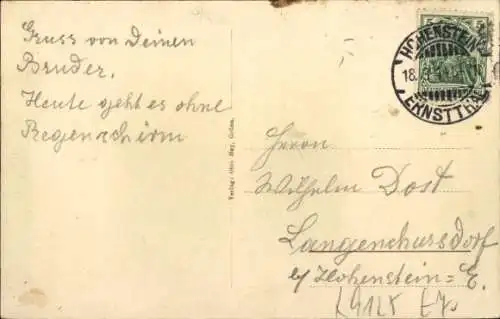 Gruss von Deinen
Bruder.
Heute geht es ohne
Regenschirm
5 5
HOHENSTEIN
18.
ERNSTTHAL
Herrn
Wilhelm Dost
Langenchursdorf
b/ Hohenstein=E.
Verlag: Otto May,